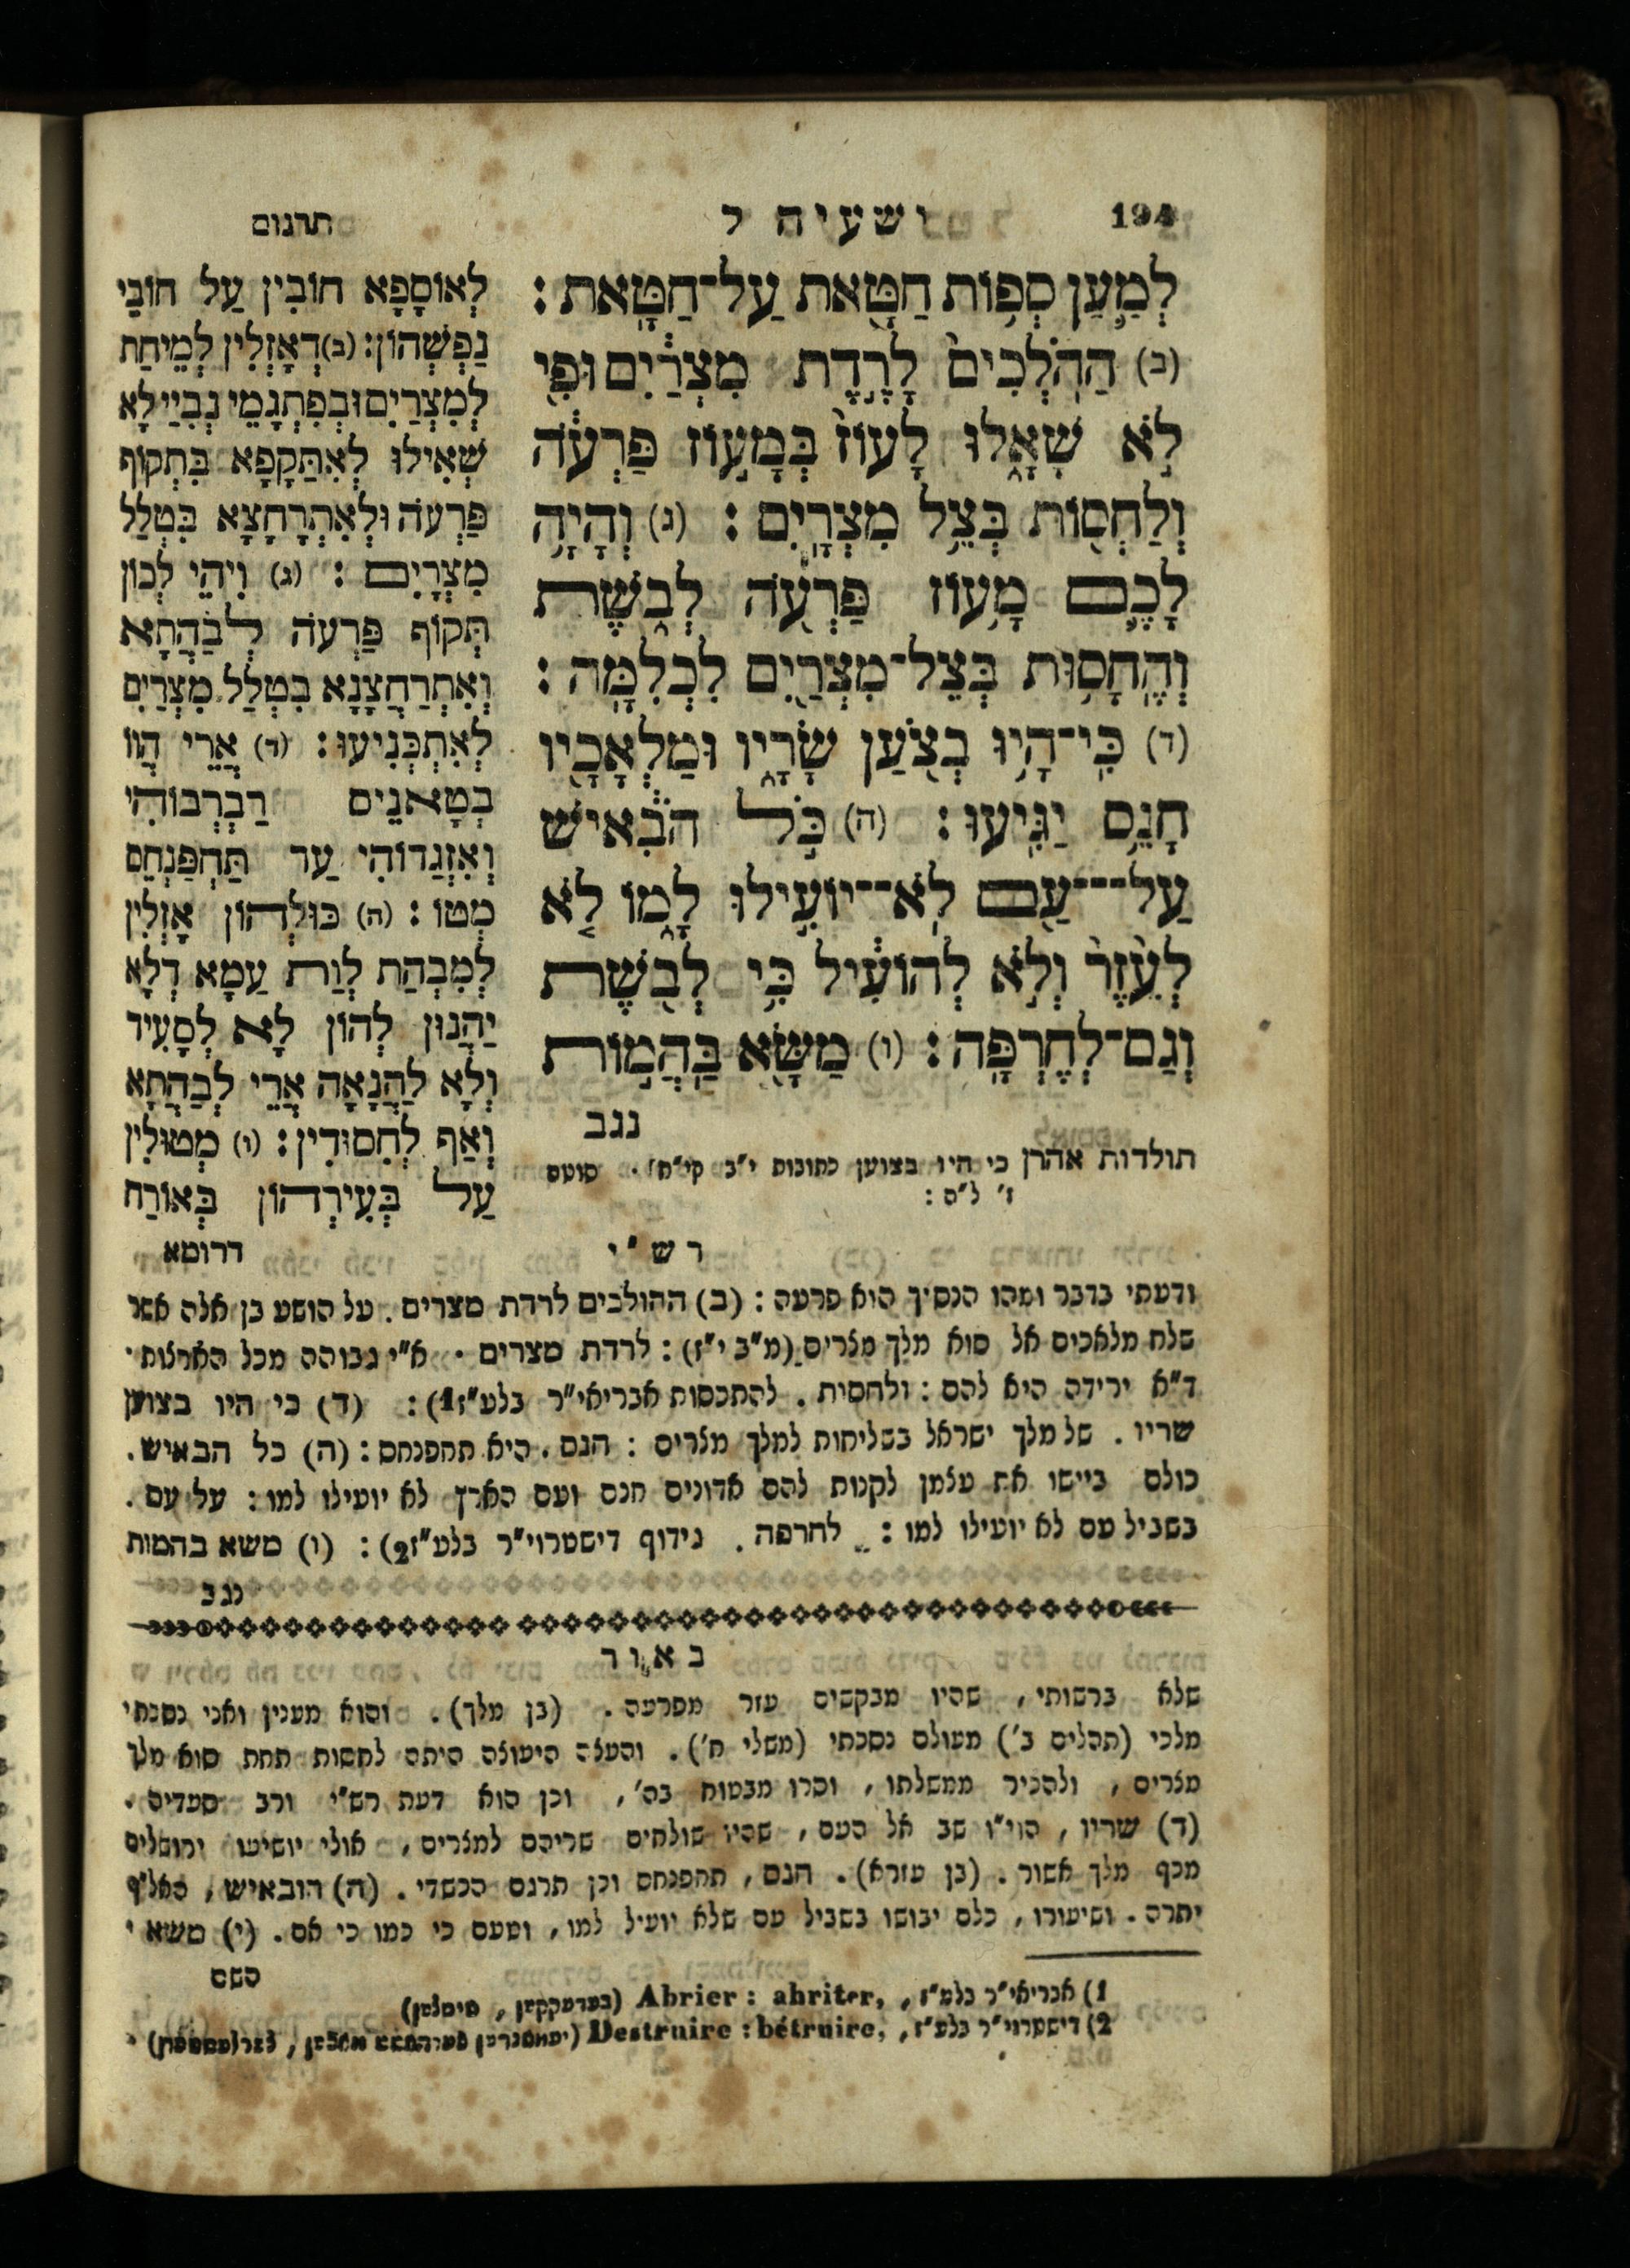 194
ישעיה ל
תרגום
לְמַ֛עַן סְפ֥וֹת חַטָּ֖את עַל־חַטָּֽאת׃
(ב) הַהֹֽלְכִים֙ לָרֶ֣דֶת מִצְרַ֔יִם וּפִ֖י
לֹ֣א שָׁאָ֑לוּ לָעוֹז֙ בְּמָע֣וֹז פַּרְעֹ֔ה
וְלַחְס֖וֹת בְּצֵ֥ל מִצְרָֽיִם׃ (ג) וְהָיָ֥ה
לָכֶ֛ם מָע֥וֹז פַּרְעֹ֖ה לְבֹ֑שֶׁת
וְהֶחָס֥וּת בְּצֵל־מִצְרַ֖יִם לִכְלִמָּֽה׃
(ד) כִּֽי־הָי֥וּ בְצֹ֖עַן שָׂרָ֑יו וּמַלְאָכָ֖יו
חָנֵ֥ס יַגִּֽיעוּ׃ (ה) כֹּ֣ל הֹבִ֔אישׁ
עַל־עַ֖ם לֹא־יוֹעִ֣ילוּ לָ֑מוֹ לֹ֤א
לְעֵ֙זֶר֙ וְלֹ֣א לְהוֹעִ֔יל כִּ֥י לְבֹ֖שֶׁת
וְגַם־לְחֶרְפָּֽה׃ (ו) מַשָּׂ֖א בַּֽהֲמ֣וֹת
נגב
תולדות אהרן כי היו בצוען כתובות י"ב קי"ח. סוטס
ז' ל"ס:
לְאוֹסָפָא חוֹבִין עַל חוֹבֵי
נַפְשְׁהוֹן: (ב) דְאָזְלִין לְמֵיחַת
לְמִצְרַיִם וּבְפִתְגָמֵי נְבִיַי לָא
שְׁאִילוּ לְאִתַּקָפָא בִּתְקוֹף
פַּרְעֹה וּלְאִתְרַחָצָא בִּטְלַל
מִצְרָיִם: (ג) וִיהֵי לְכוֹן
תְּקוֹף פַּרְעֹה לְבַהֲתָא
וְאִתְרַחֲצָנָא בִטְלַל מִצְרַיִם
לְאִתְכְּנִיעוּ: (ד) אֲרֵי הֲווֹ
בְטָאנֵיס רַבְרְבוֹהִי
וְאִזְגַדוֹהִי עַד תַּחְפַּנְחֵס
מְטוֹ: (ה) כּוּלְהוֹן אָזְלִין
לְמִבְהַת לְוַת עַמָא דְלָא
יַהֲנוּן לְהוֹן לָא לְסָעִיד
וְלָא לַהֲנָאָה אֲרֵי לְבַהֲתָא
וְאַף לְחִסוּדִין: (ו) מְטוּלִין
עַל בְּעִירְהוֹן בְּאוֹרַח
דרומא
רש"י
ודעתי בדבר ומהו הנסיך הוא פרעה: (ב) ההולכים לרדת מצרים. על הושע בן אלה אשר
שלח מלאכים אל סוא מלך מצרים (מ"ב י"ז): לרדת מצרים. א"י גבוהה מכל הארצות.
ד"א ירידה היא להם: ולחסות. להתכסות אבריאי"ר בלע"ז1): (ד) כי היו בצוען
שריו. של מלך ישראל בשליחות למלך מצרים: חנם. היא תחפנחס: (ה) כל הבאיש.
כולם ביישו את עצמן לקנות להם אדונים חנס ועם הארץ לא יועילו למו: על עם.
בשביל עם לא יועילו למו: לחרפה. גידוף דישטרוי"ר בלע"ז2): (ו) משא בהמות
נגב
באור
שלא ברשותי, שהיו מבקשים עזר מפרעה. (בן מלך). והוא מענין ואני נסכתי
מלכי (תהלים ב') מעולם נסכתי (משלי ח'). והעצה היעוצה היתה לחסות תחת סוא מלך
מצרים, ולהכיר ממשלתו, וסרו מבטוח בה', וכן הוא דעת רש"י ורב סעדיה.
(ד) שריו, הוי"ו שב אל העם, שהיו שולחים שריהם למצרים, אולי יושיעו ירושלים
מכף מלך אשור. (בן עזרא). חנם, תחפנחס וכן תרגם הכשדי. (ה) הובאיש, האל"ף
יתרה. ושיעורו, כלם יבושו בשביל עם שלא יועיל למו, וטעם כי כמו כי אם. (ו) משא
סשס
1) אבריאי"ר בלע"ז, Abrier: abriter, (בעדעקקען,
2) דישטרוי"ר בלע"ז, Destruire: détruire,